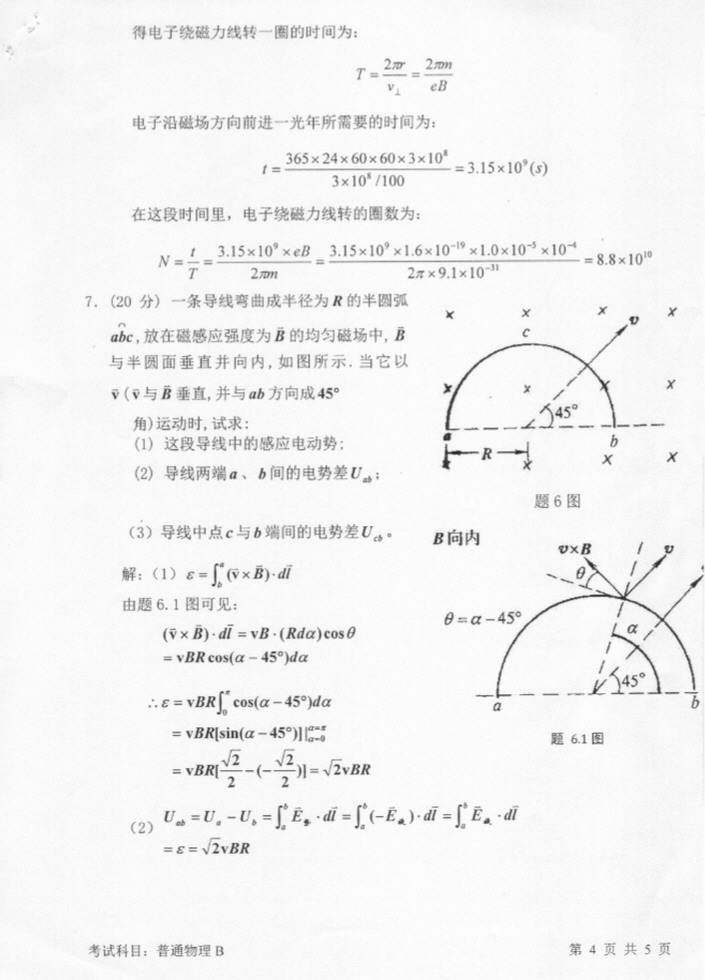 得电子绕磁力线转一圈的时间为:
T = 2πr/v⊥ = 2πm/eB
电子沿磁场方向前进一光年所需要的时间为:
t = 365×24×60×60×3×10⁸ / 3×10⁸/100 = 3.15×10⁹(s)
在这段时间里，电子绕磁力线转的圈数为:
N = t/T = 3.15×10⁹×eB / 2πm = 3.15×10⁹×1.6×10⁻¹⁹×1.0×10⁻⁵×10⁻⁴ / 2π×9.1×10⁻³¹ = 8.8×10¹⁰
7. (20 分) 一条导线弯曲成半径为 R 的半圆弧
abc, 放在磁感应强度为 B⃗ 的均匀磁场中, B⃗
与半圆面垂直并向内, 如图所示. 当它以
v⃗ (v⃗ 与 B⃗ 垂直, 并与 ab 方向成 45°
角) 运动时, 试求:
(1) 这段导线中的感应电动势;
(2) 导线两端 a 、 b 间的电势差 U_ab ;
(3) 导线中点 c 与 b 端间的电势差 U_cb 。
c
v
45°
a
b
R
题 6 图
解: (1) ε = ∫_b^a (v⃗ × B⃗)·dl⃗
由题 6.1 图可见:
(v⃗ × B⃗)·dl⃗ = vB·(Rdα)cosθ
= vBRcos(α − 45°)dα
∴ε = vBR∫_0^π cos(α − 45°)dα
= vBR[sin(α − 45°)]|_{α=0}^{α=π}
= vBR[√2/2 − (−√2/2)] = √2vBR
B向内
v×B
v
θ
θ = α − 45°
α
45°
a
b
题 6.1图
(2) U_ab = U_a − U_b = ∫_a^b E⃗·dl⃗ = ∫_a^b (−E⃗)·dl⃗ = ∫_a^b E⃗·dl⃗
= ε = √2vBR
考试科目: 普通物理 B
第 4 页 共 5 页